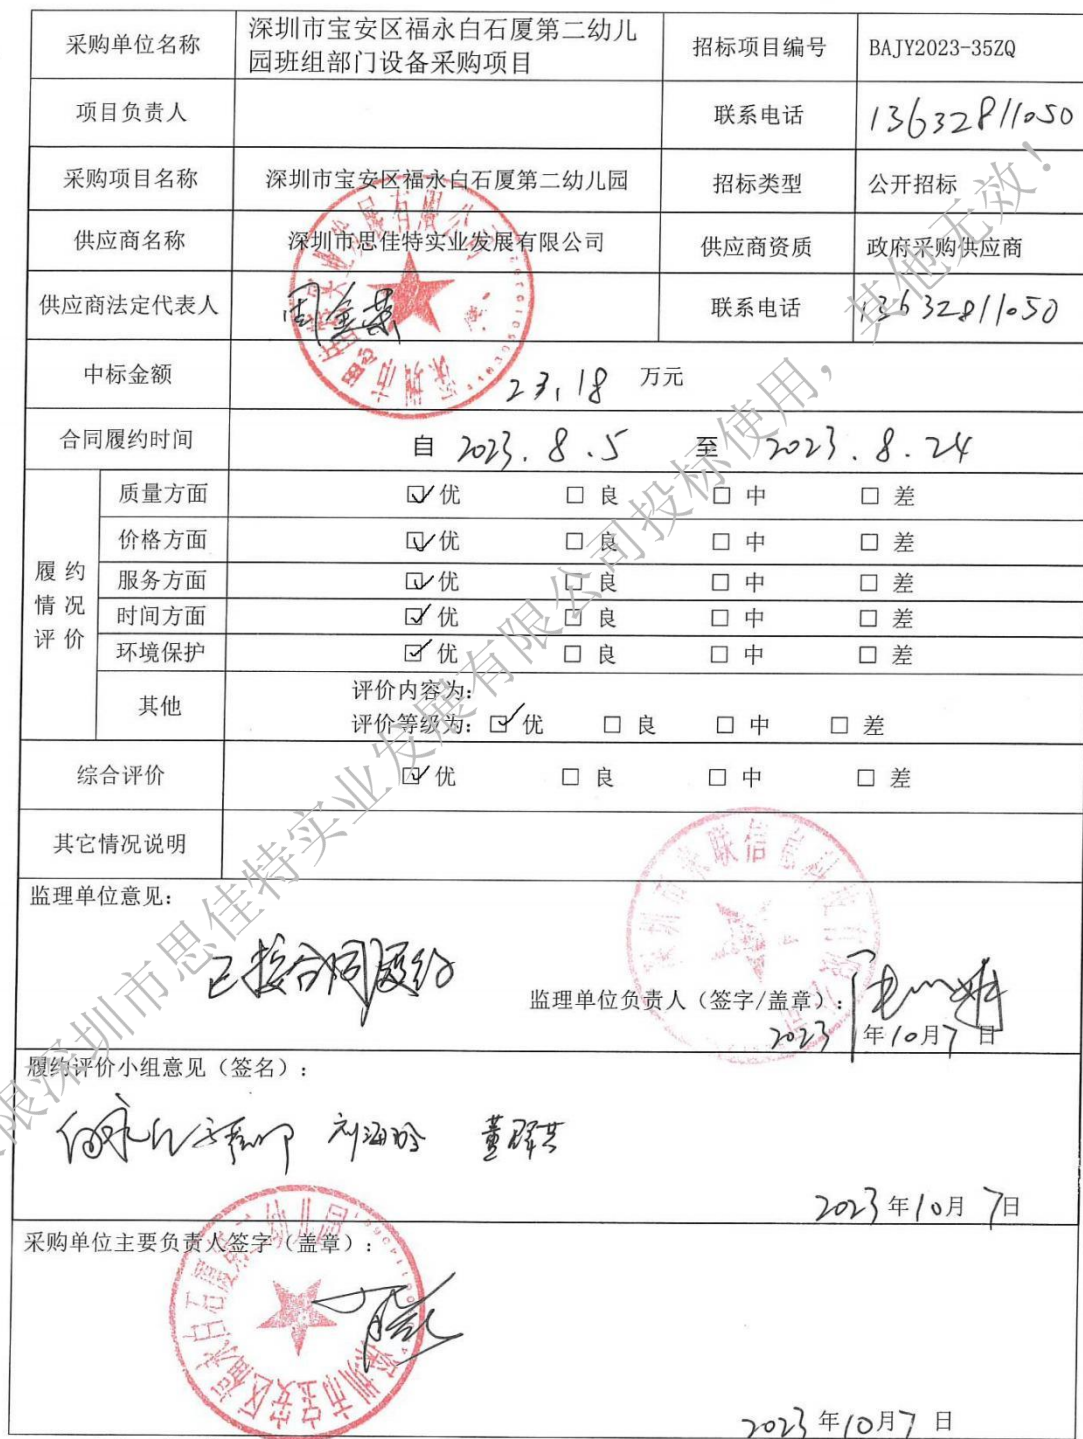 采购单位名称 深圳市宝安区福永白石厦第二幼儿园班组部门设备采购项目 招标项目编号 BAJY2023-35ZQ
项目负责人 联系电话 13632811050
采购项目名称 深圳市宝安区福永白石厦第二幼儿园 招标类型 公开招标
供应商名称 深圳市思佳特实业发展有限公司 供应商资质 政府采购供应商
供应商法定代表人 联系电话 13632811050
中标金额 23.18 万元
合同履约时间 自 2023.8.5 至 2023.8.24
履约情况评价
质量方面 ☑优 □良 □中 □差
价格方面 ☑优 □良 □中 □差
服务方面 ☑优 □良 □中 □差
时间方面 ☑优 □良 □中 □差
环境保护 ☑优 □良 □中 □差
其他 评价内容为:
评价等级为: ☑优 □良 □中 □差
综合评价 ☑优 □良 □中 □差
其它情况说明
监理单位意见:
已按合同履约
监理单位负责人（签字/盖章）:
2023年10月7日
履约评价小组意见（签名）:
刘海玲
2023年10月7日
采购单位主要负责人签字（盖章）:
深圳市宝安区福永白石厦第二幼儿园
2023年10月7日
限深圳市思佳特实业发展有限公司投标使用，其他无效！